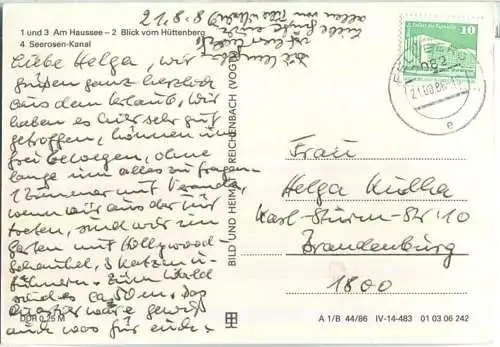 1 und 3 Am Haussee – 2 Blick vom Hüttenberg
4 Seerosen-Kanal
21.8.8
Liebe Helga, wir
grüßen ganz herzlich
aus dem Urlaub, wir
haben es hier sehr gut
getroffen, können uns
frei bewegen, ohne
lange um alles zu fragen.
1 Zimmer mit Veranda,
wenn wir aus der Tür
treten, sind wir im
Garten mit Hollywood-
schaukel, 3 Katzen u.
Hühnern. Zum Wald
sind es ca. 50 m. Das
Quartier wäre gewiß
auch was für euch.
Liebe Grüße auch
allen
DDR 0,25 M
BILD UND HEIMAT REICHENBACH (VOGTL)
10
21.08.86
e
Frau
Helga
Karl-Sturm-Str 10
Brandenburg
1800
A 1/B 44/86 IV-14-483 01 03 06 242